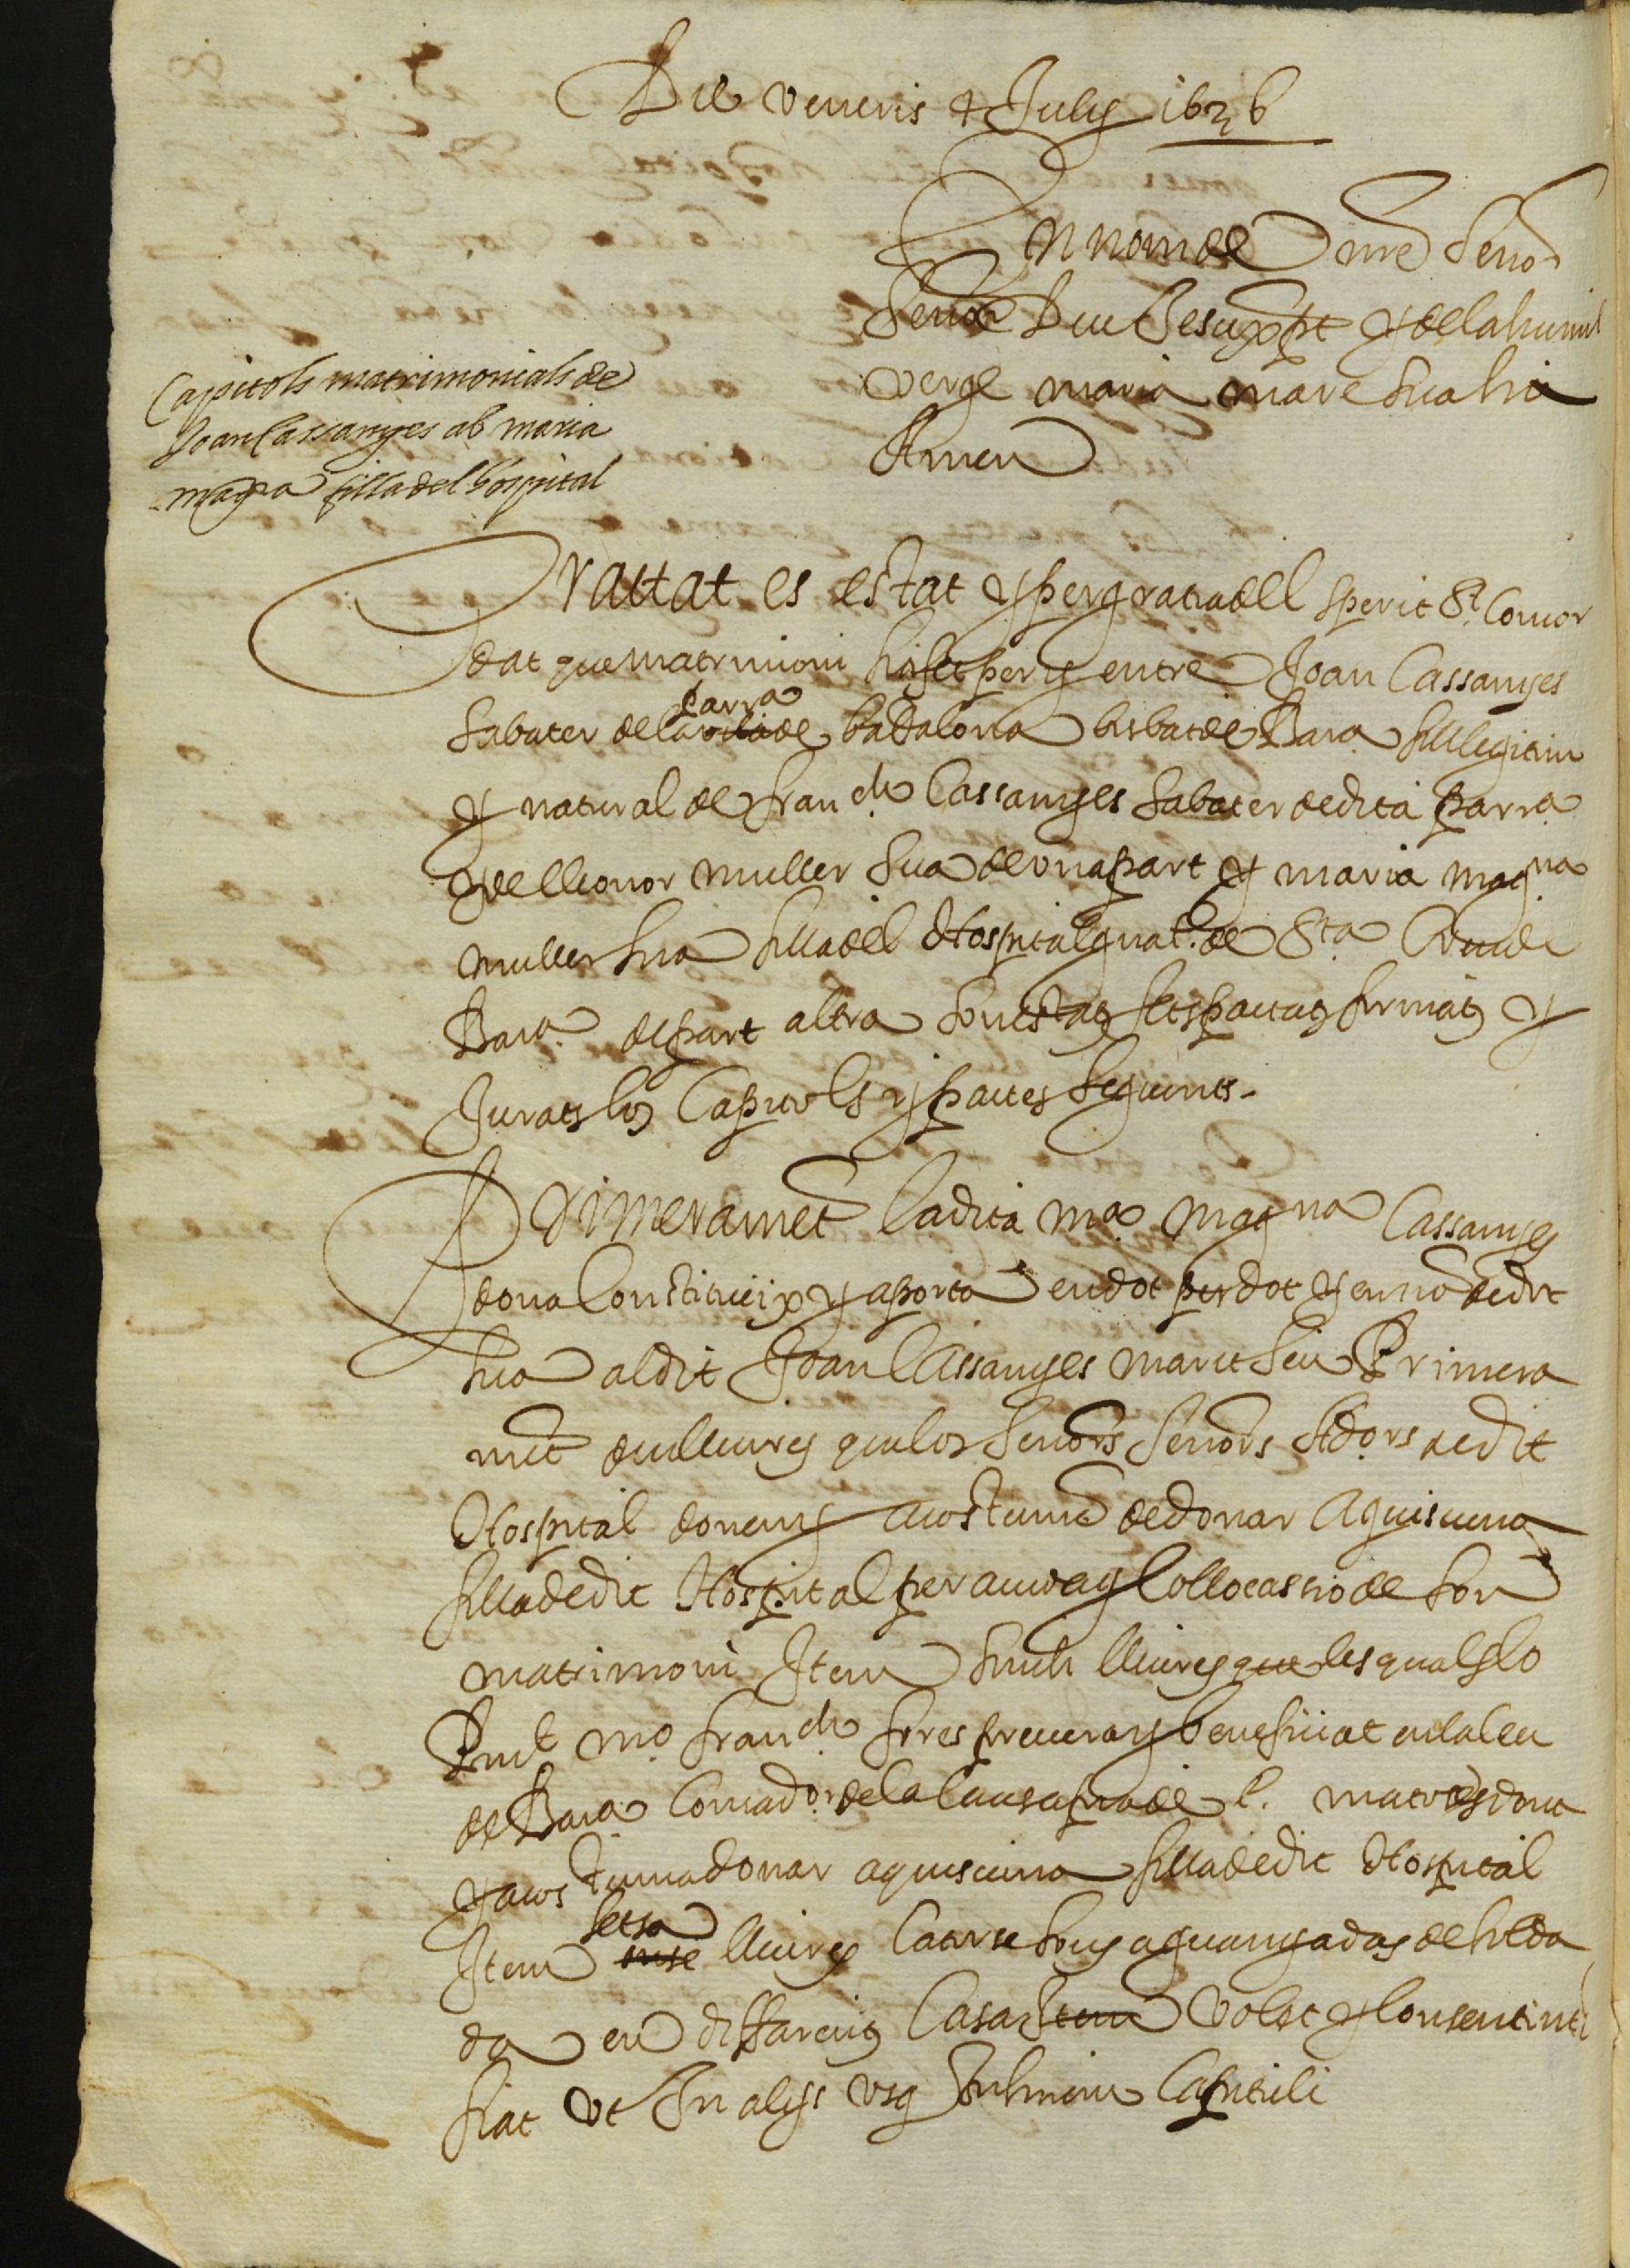 Die veneris 4 July 1626
En nom de nre Senor
Senor Deu Jesuxpt y dela humil
verge maria mare sua hia
Amen
Capitols matrimonials de
Joan Cassanyes ab maria
magna filla del hospital
Trattat es estat y per gratia del sperit St. Concor
dat que matrimoni sie fet per y entre Joan Cassanyes
parra
Sabater de la vila de badalona bisbat de Barna fill legitim
y natural de franch Cassanyes Sabater de dita parra
y de lleonor muller sua de una part y maria magna
muller sua filla del Hospital gnal de Sta Creu de
Barna de part altra son estats fets pactats firmats y
Jurats los Capitols y pactes seguents.
Primeramet la dita ma magna Cassanyes
dona Constitueix y aporta en dot per dot y en nom de dot
sua al dit Joan Cassanyes marit seu Primera
met lliures que los Senors Senors Adors de dit
Hospital donen y acostumen de donar a quiscuna
filla de dit Hospital per aiuda y collocassio de son
matrimoni Item sinch lliures que les quals lo
Rnt mo franch forres prevere y benefitiat en la seu
de Barna de la Causa pia de matrex dona
y acostuma donar a quiscuna filla de dit Hospital
setsa
Item lliures Catorse sous aguanyadas de solda
da en differents Casas Item volet y consentint
fiat ut In alijs usq In finem Capituli